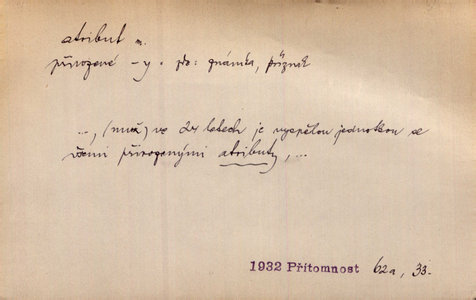 atribut m.
přirozené -y. pto: znamka, příznak
..., (muž) ve 24 letech je vyspělou jednotkou se
všemi přirozenými atributy, ...
1932 Přítomnost 62a, 33.